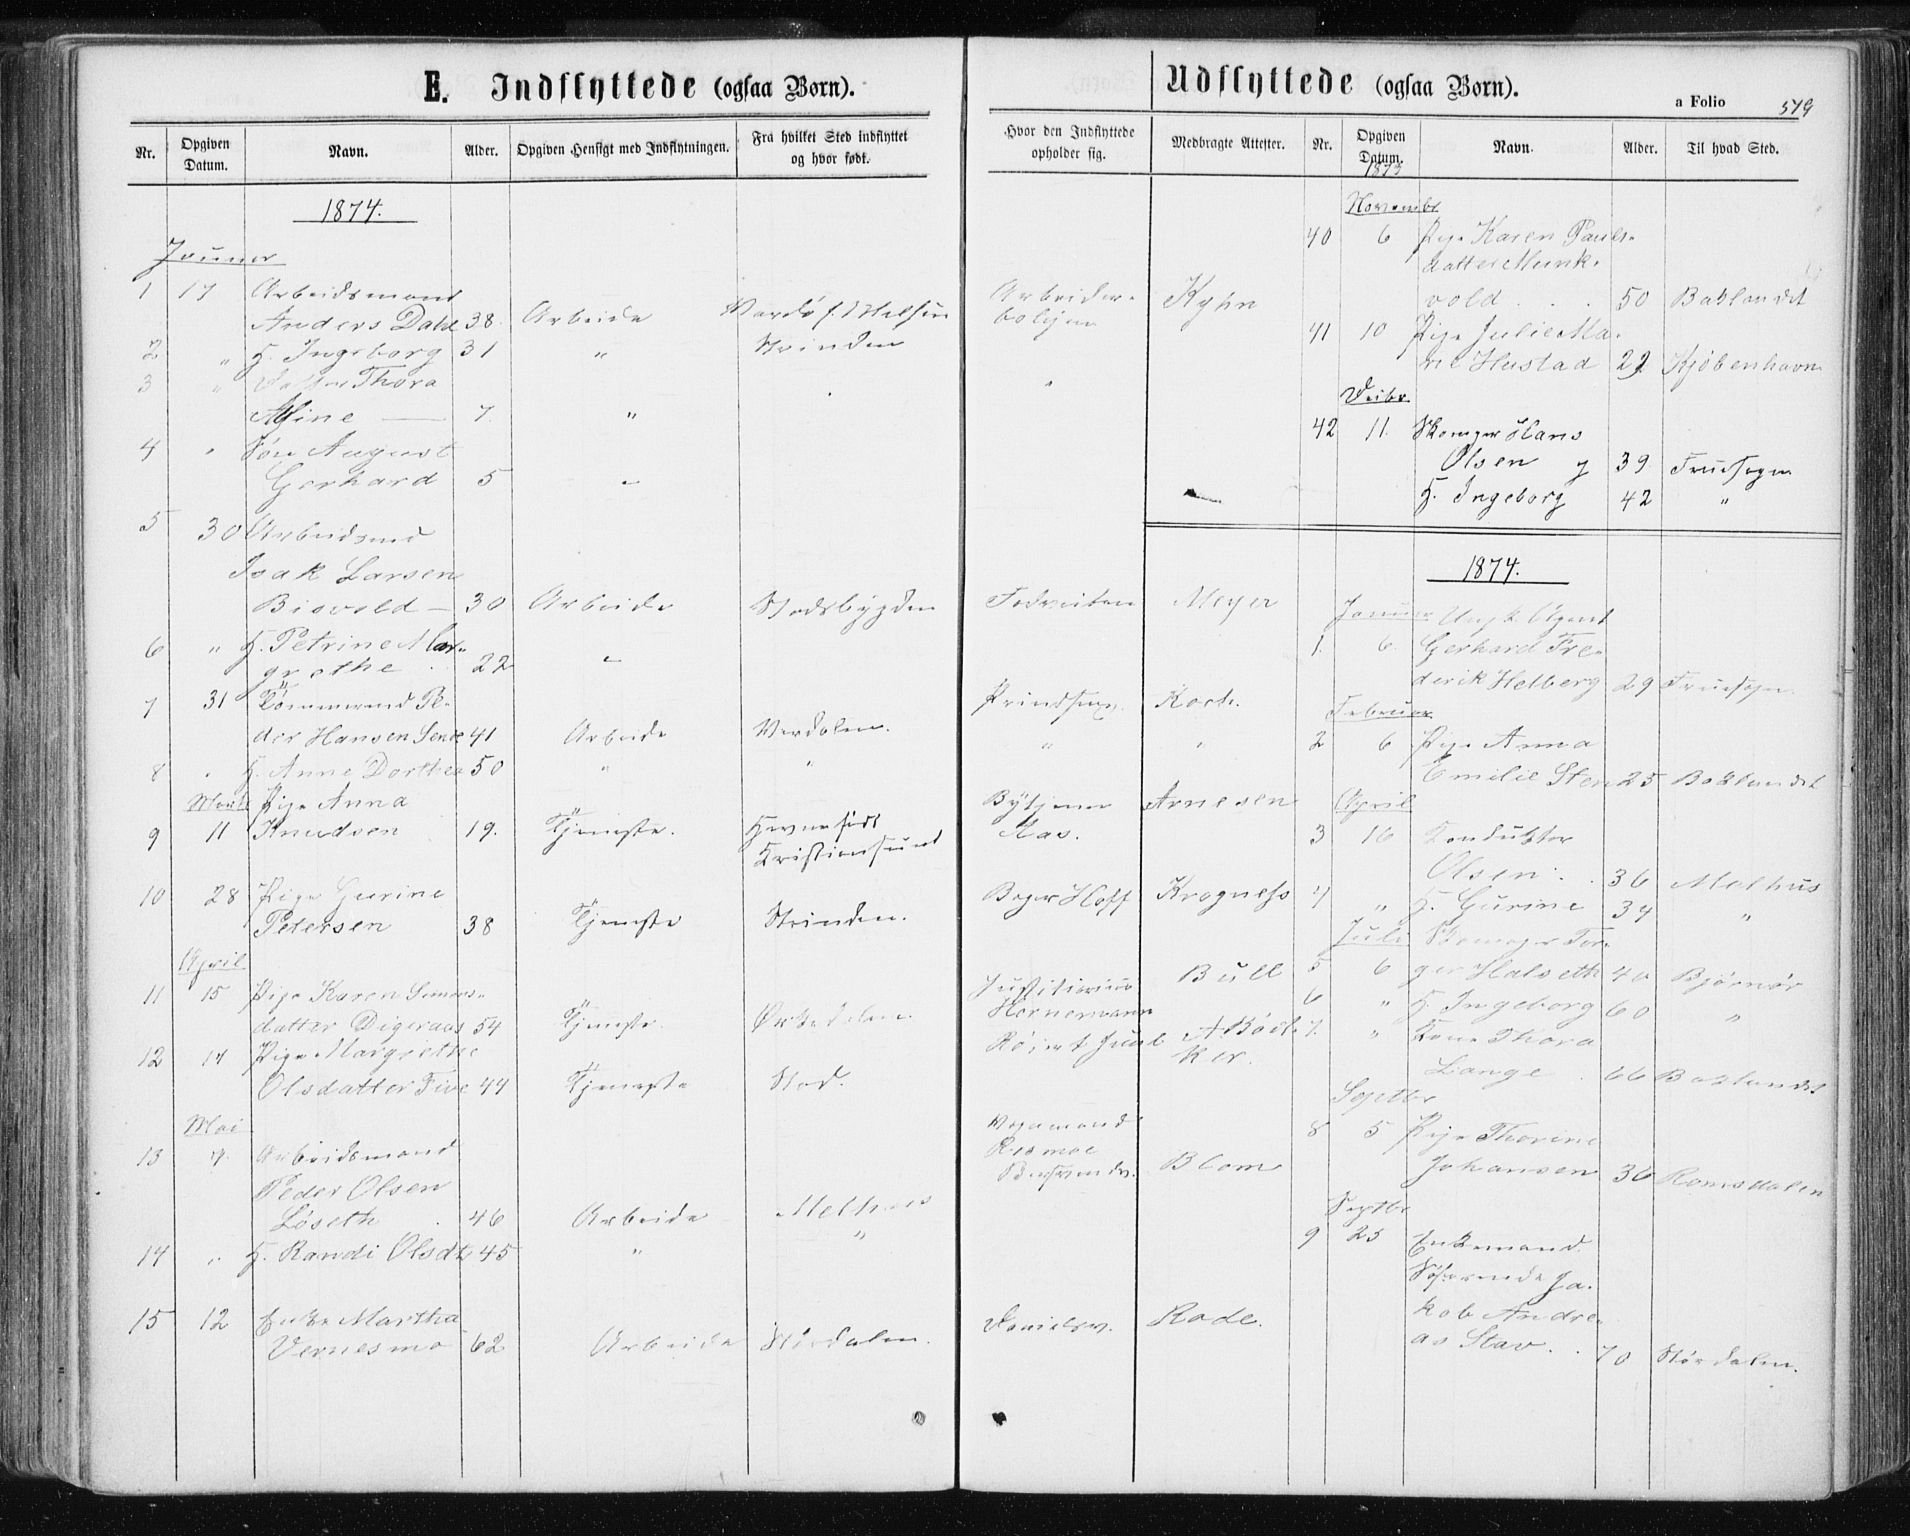 E. Indflyttede (ogsaa Børn).
Nr. Opgiven Datum. Navn. Alder. Opgiven Hensigt med Indflytningen. Fra hvilket Sted indflyttet og hvor født. Hvor den Indflyttede opholder sig. Medbragte Attester.
1874.
Januar
1 17 Arbeidsmand
Anders Dahl 38. Arbeide Kyhn
2 " H. Ingeborg 31 " Strinden
3 " Datter Thora "
Aline — 7. "
4 " Søn August
Gerhard 5 "
5 30 Arbeidsmd
Isak Larsen
Bisvold — 30 Arbeide Stadsbygden Meyer
6 " H. Petrine Mar-
grethe 22 "
7 31 Tømmermd Pe-
der Hansen 41 Arbeide Verdalen. Koch.
8 " H. Anne Dorthea 50 " " " "
Marts Pige Anna
9 11 Knudsen 19. Tjeneste. Hevne født Kristiansund Aas. Arnesen
10 28 Pige Gurine
Petersen 38 Tjeneste Strinden. Bager Hoff Krogness
April
11 15 Pige Karen Simons-
datter Digeraas 54 Tjeneste. Ørkedalen. Justitiarius Hornemann Bull
12 17 Pige Margrethe
Olsdatter Five 44 Tjeneste Stod.
Mai
13 7. Arbeidsmand
Peder Olsen
Løseth 46 Arbeide Melhus Blom
14 " H. Randi Olsdt 45 " "
15 12 Enke Martha
Vernesmo 62 Arbeide Størdalen. Danielsv. Rode.
Udflyttede (ogsaa Børn).
a Folio 579
Nr. Opgiven Datum. Navn. Alder. Til hvad Sted.
1873
Novembr
40 6 Pige Karen Pauls-
datter Munk-
vold . . . 50 Baklandet
41 10 Pige Julie Ma-
rie Hustad 29 Kjøbenhavn
Decbr
42 11. Skomager Hans
Olsen og 39 Fruesogn
H. Ingeborg 42 "
1874.
Januar Ungk. Agent
1. 6. Gerhard Fre-
derik Helberg 29 Fruesogn
Februar
2 6 Pige Anna
Emilie Sten 25 Baklandet
April
3 16 Konduktør
Olsen . . 36 Melhus
4 " H. Gurine 34 "
Juli Skomager Tor-
5 6 ger Halseth 40 Bjørnør
6 " H. Ingeborg 60 "
7. " Kone Thora
Lange . 66 Baklandet
Septbr
8 5 Pige Thorine
Johansen 36 Romsdalen
Septbr
9 25 Enkemand
Ja-
kob Andre-
as Stav . . 70 Størdalen.